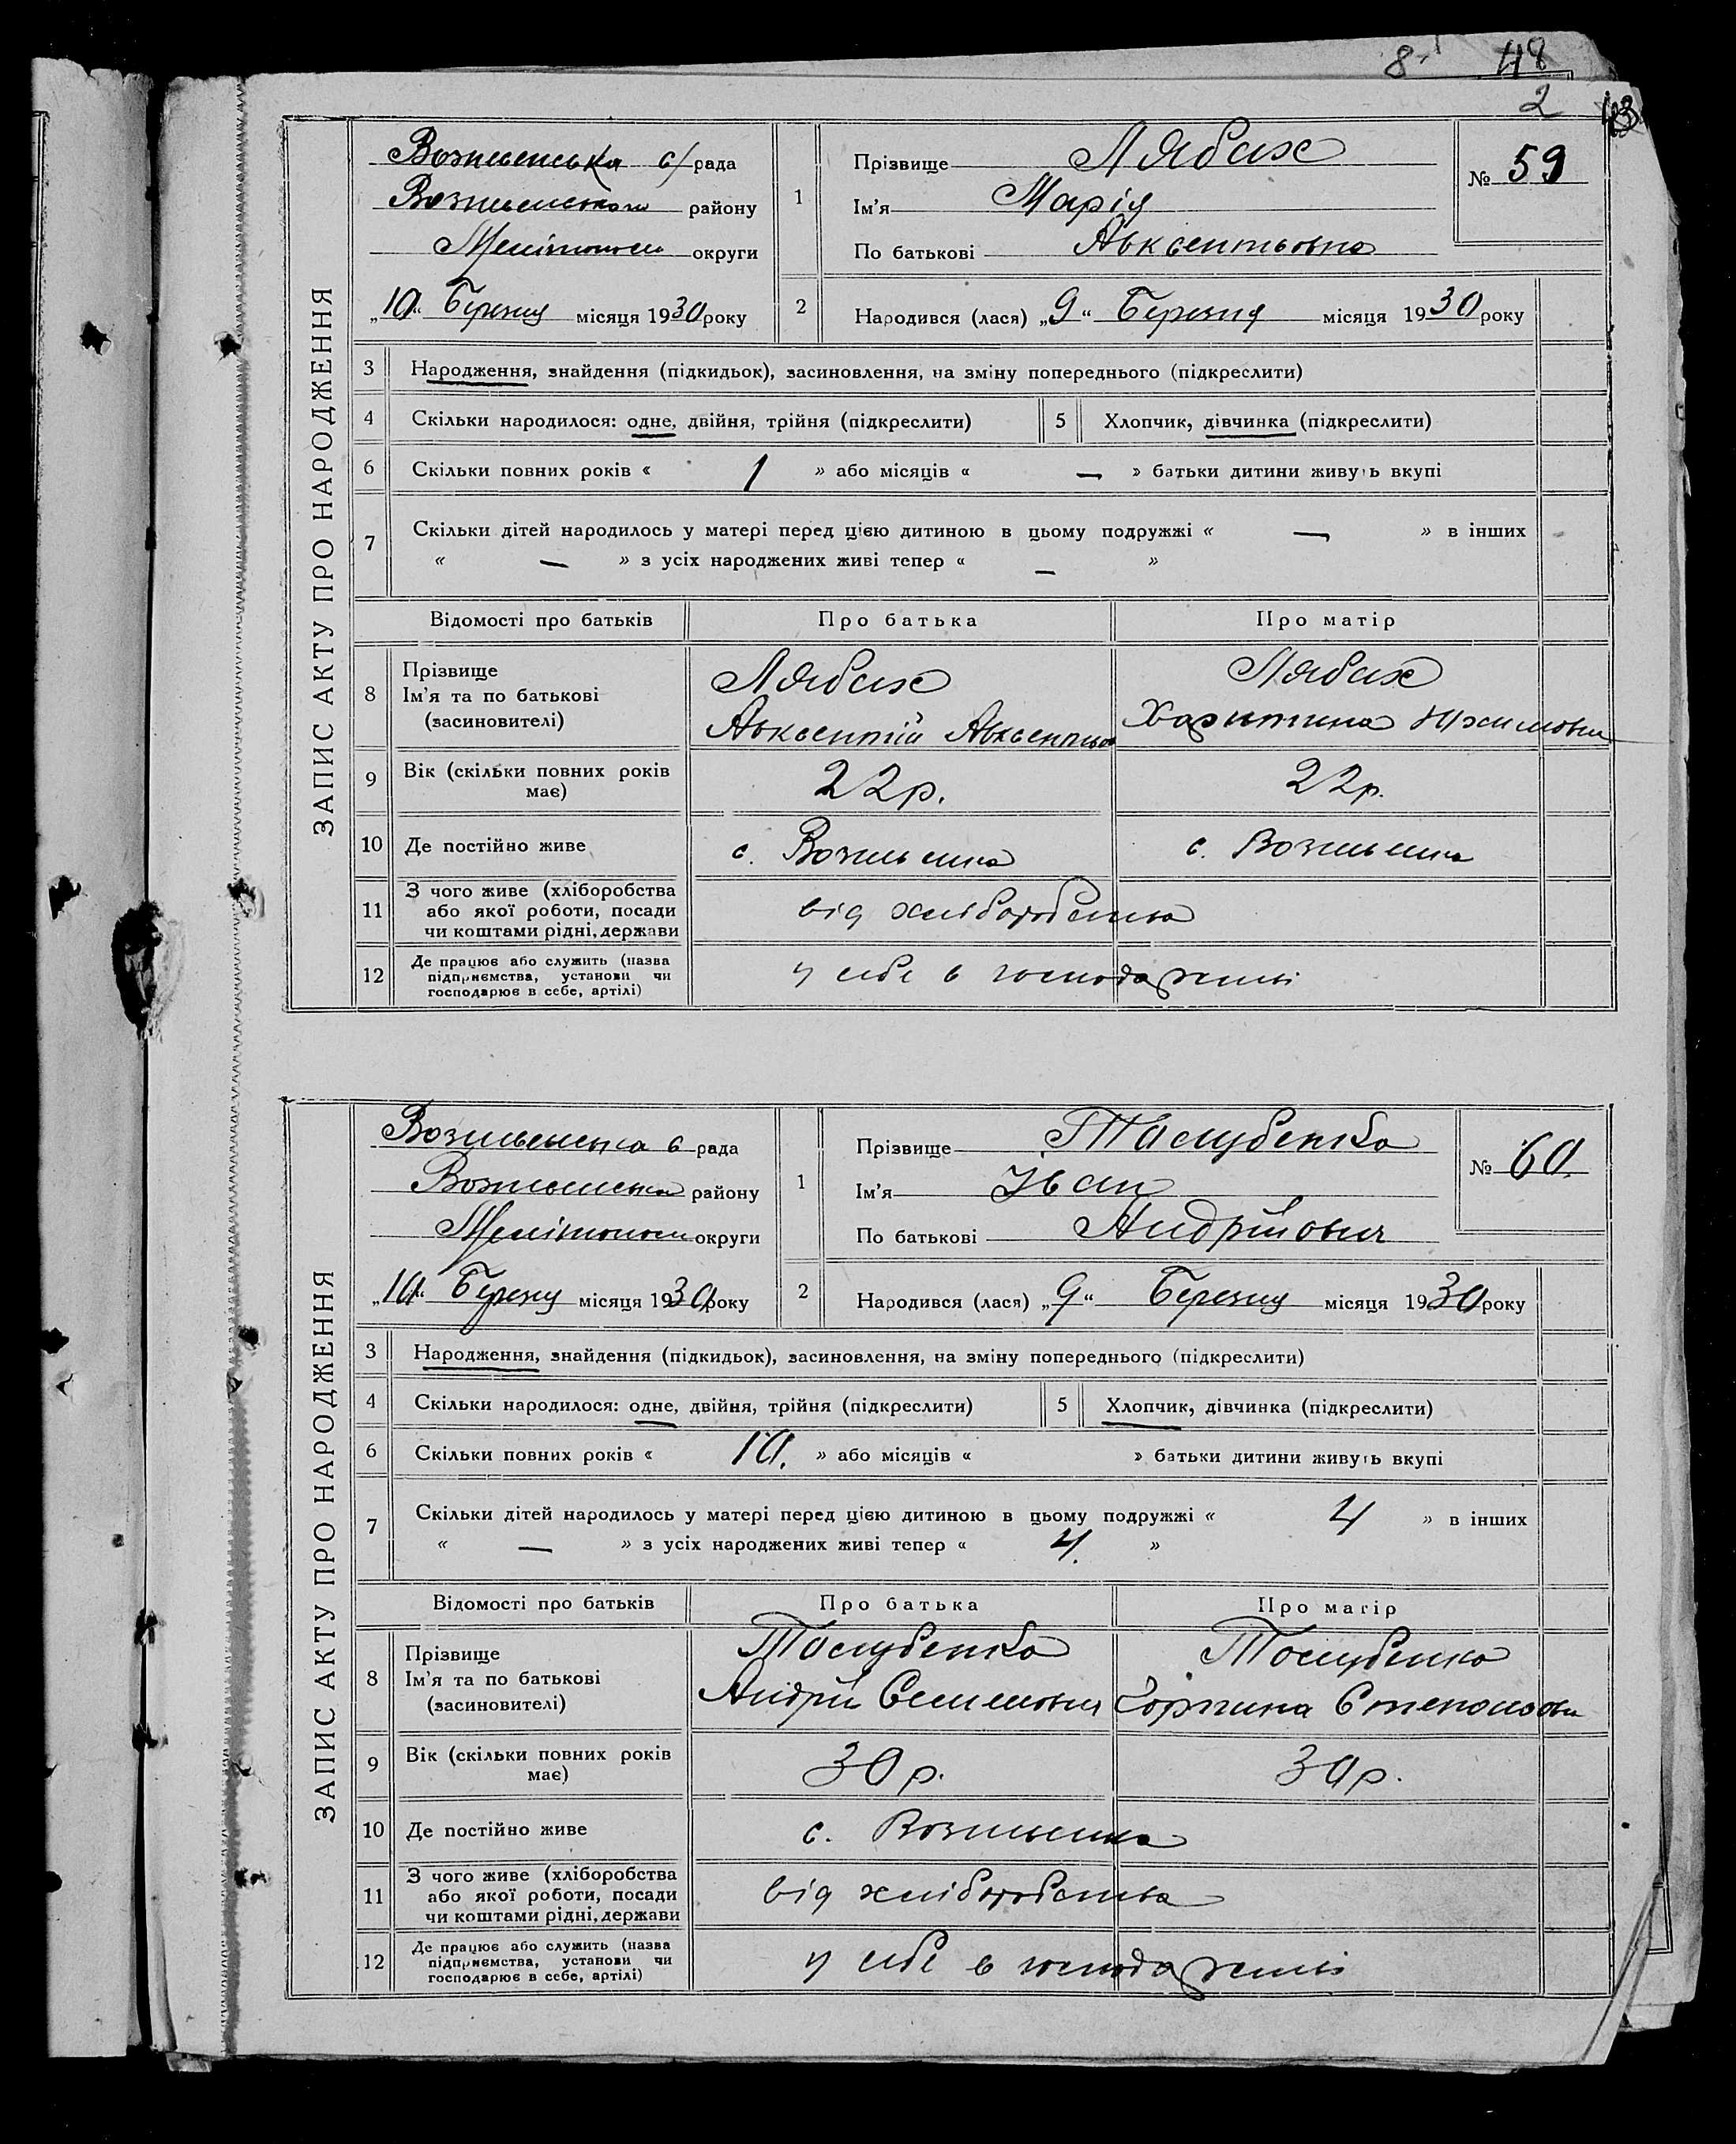 8 48
2
ЗАПИС АКТУ ПРО НАРОДЖЕННЯ
Вознесенська с/рада
Вознесенського району
Мелітопольс округи
„10“ Березня місяця 1930 року
1
Прізвище Лябах
Ім'я Марія
По батькові Авксентьовна
№ 59
2
Народився (лася) „9“ Березня місяця 1930 року
3 Народження, знайдення (підкидьок), засиновлення, на зміну попереднього (підкреслити)
4 Скільки народилося: одне, двійня, трійня (підкреслити) 5 Хлопчик, дівчинка (підкреслити)
6 Скільки повних років « 1 » або місяців « — » батьки дитини живуть вкупі
7 Скільки дітей народилось у матері перед цією дитиною в цьому подружжі « — » в інших
« — » з усіх народжених живі тепер « — »
Відомості про батьків Про батька Про матір
8 Прізвище
Ім'я та по батькові
(засиновителі)
Лябах
Авксентій Авксентьов
Лябах
Харитина Юхимовна
9 Вік (скільки повних років має) 22р. 22р.
10 Де постійно живе с. Вознесенка с. Вознесенка
11 З чого живе (хліборобства
або якої роботи, посади
чи коштами рідні, держави
від хліборобства
12 Де працює або служить (назва
підприємства, установи чи
господарює в себе, артілі)
у себе в господарстві
ЗАПИС АКТУ ПРО НАРОДЖЕННЯ
Вознесенська с рада
Вознесенська району
Мелітопольс округи
„10“ Березня місяця 1930 року
1
Прізвище
Ім'я Іван
По батькові Андрійович
№ 60.
2
Народився (лася) „9“ Березня місяця 1930 року
3 Народження, знайдення (підкидьок), засиновлення, на зміну попереднього (підкреслити)
4 Скільки народилося: одне, двійня, трійня (підкреслити) 5 Хлопчик, дівчинка (підкреслити)
6 Скільки повних років « 10. » або місяців « » батьки дитини живуть вкупі
7 Скільки дітей народилось у матері перед цією дитиною в цьому подружжі « 4 » в інших
« — » з усіх народжених живі тепер « 4. »
Відомості про батьків Про батька Про матір
8 Прізвище
Ім'я та по батькові
(засиновителі)
Андрій Семенович
Степановн
9 Вік (скільки повних років має) 30р. 30р.
10 Де постійно живе с. Вознесенка
11 З чого живе (хліборобства
або якої роботи, посади
чи коштами рідні, держави
від хліборобства
12 Де працює або служить (назва
підприємства, установи чи
господарює в себе, артілі)
у себе в господарстві